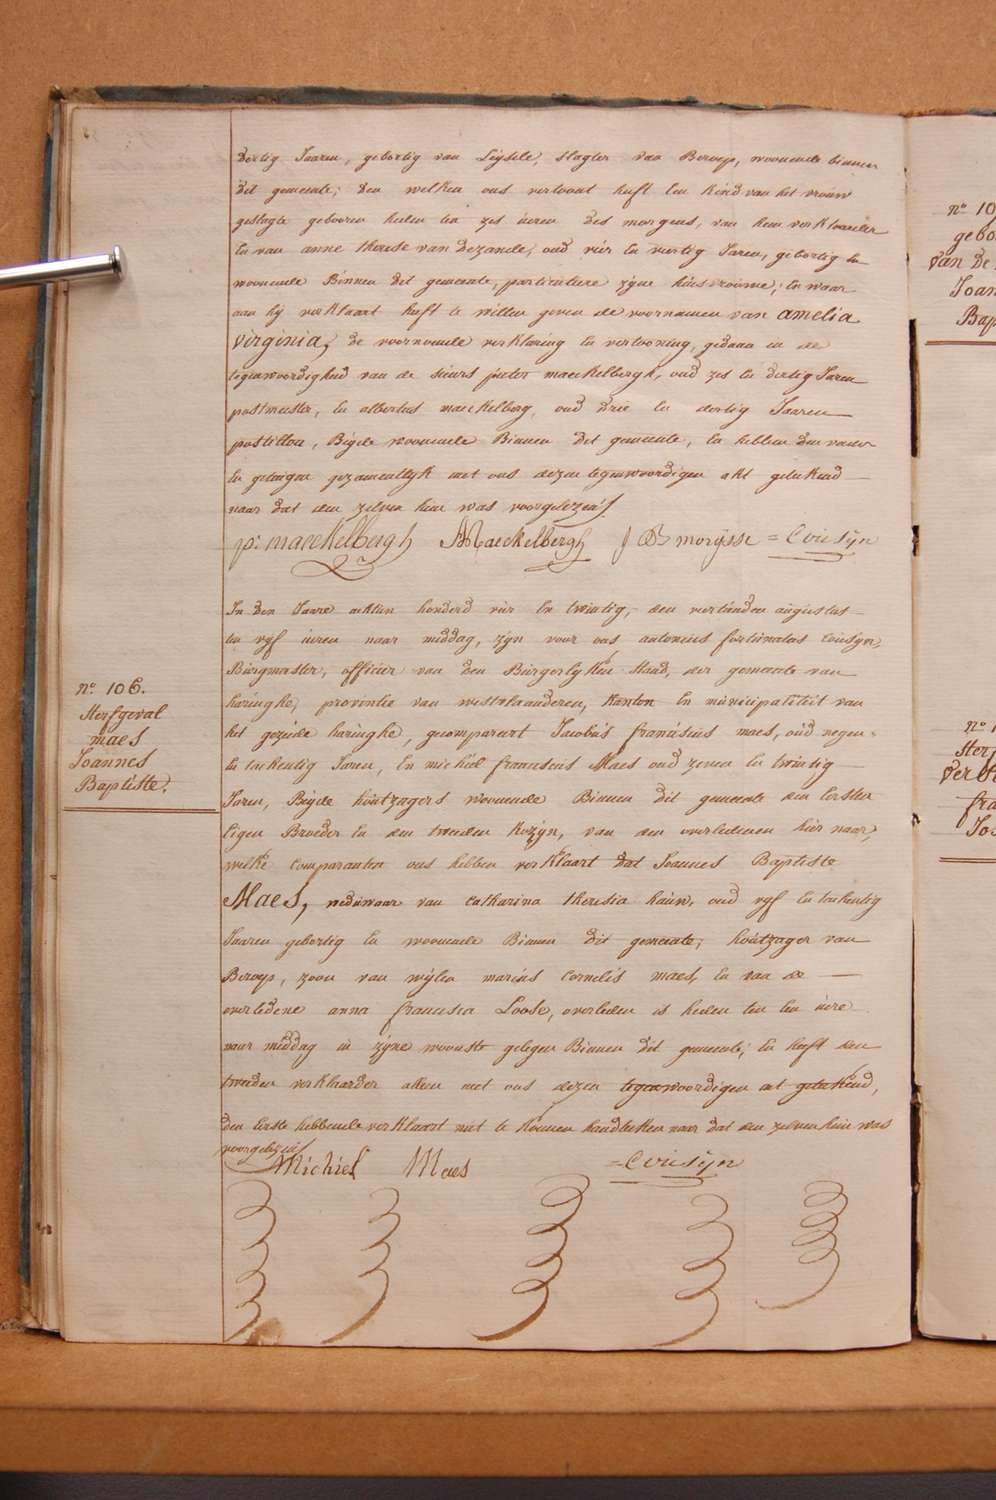 dertig Jaaren, gebortig van Leysele, slagter van Beroep, woonende binnen
dit gemeente; den welken ons vertoont heeft Een kind van het vrouw
geslagte gebooren heden ten zes uren des morgens, van hem verklaarder
En van anne therese van dezande, oud vier En veertig Jaren, gebortig En
woonende Binnen dit gemeente, particuliere zyne huisvrouwe; En waar
aan hij verklaart heeft te willen geven de voornamen van amelia
virginia, de voornoemde verklaring En vertooning, gedaan in de
tegenwoordigheid van de sieurs pieter maeckelbergh, oud zes En dertig Jaren
postmeester, En albertus maeckelberg, oud drie En dertig Jaaren
postillon, Bijde woonende Binnen dit gemeente, En hebben den vader
En getuigen gezamentlyk met ons dezen tegenwoordigen akt geteekend
naar dat den zelven hun was voorgelezen
p: maeckelbergh Maeckelbergh J B morysse = Cousyn
N.º 106.
Sterfgeval
maes
Joannes
Baptiste.
In den Jaare achtien honderd vier En twintig, den veertienden augustus
ten vyf uren naar middag, zyn voor ons antonius fortunatus Cousyn,
Burgmeester, officier van den Burgerlyken Stand, der gemeente van
haringhe, provintie van westvlaanderen, Kanton En municipaliteit van
het gezeide haringhe, gecompareert Jacobus franciscus maes, oud negen
En tachentig Jaren, En michiel franciscus Maes oud zeven En twintig
Jaren, Bijde houtzagers woonende Binnen dit gemeente den Eersten
Eigen Broeder En den tweeden Kozyn, van den overledenen hier naar,
welke comparanten ons hebben verklaart dat Joannes Baptiste
Maes, weduwaar van Catharina theresia hauw, oud vyf En tachentig
Jaaren gebortig En woonende Binnen dit gemeente; houtzager van
Beroep, zoon van wylen marinus Cornelis maes, En van de
overledene anna francisca Loose, overleden is heden ten Een uire
naar middag in zyne woonste gelegen Binnen dit gemeente; En heeft den
tweeden verklaarder alleen met ons dezen tegenwoordigen act geteekend,
den Eerste hebbende verklaart niet te konnen handteeken naar dat den zelven hun was
voorgelezen
Michiel Maes = Cousyn
N.º 10
gebo
Van De
Joan
Bap
N.º 1
Sterf
Ver
fra
Jo